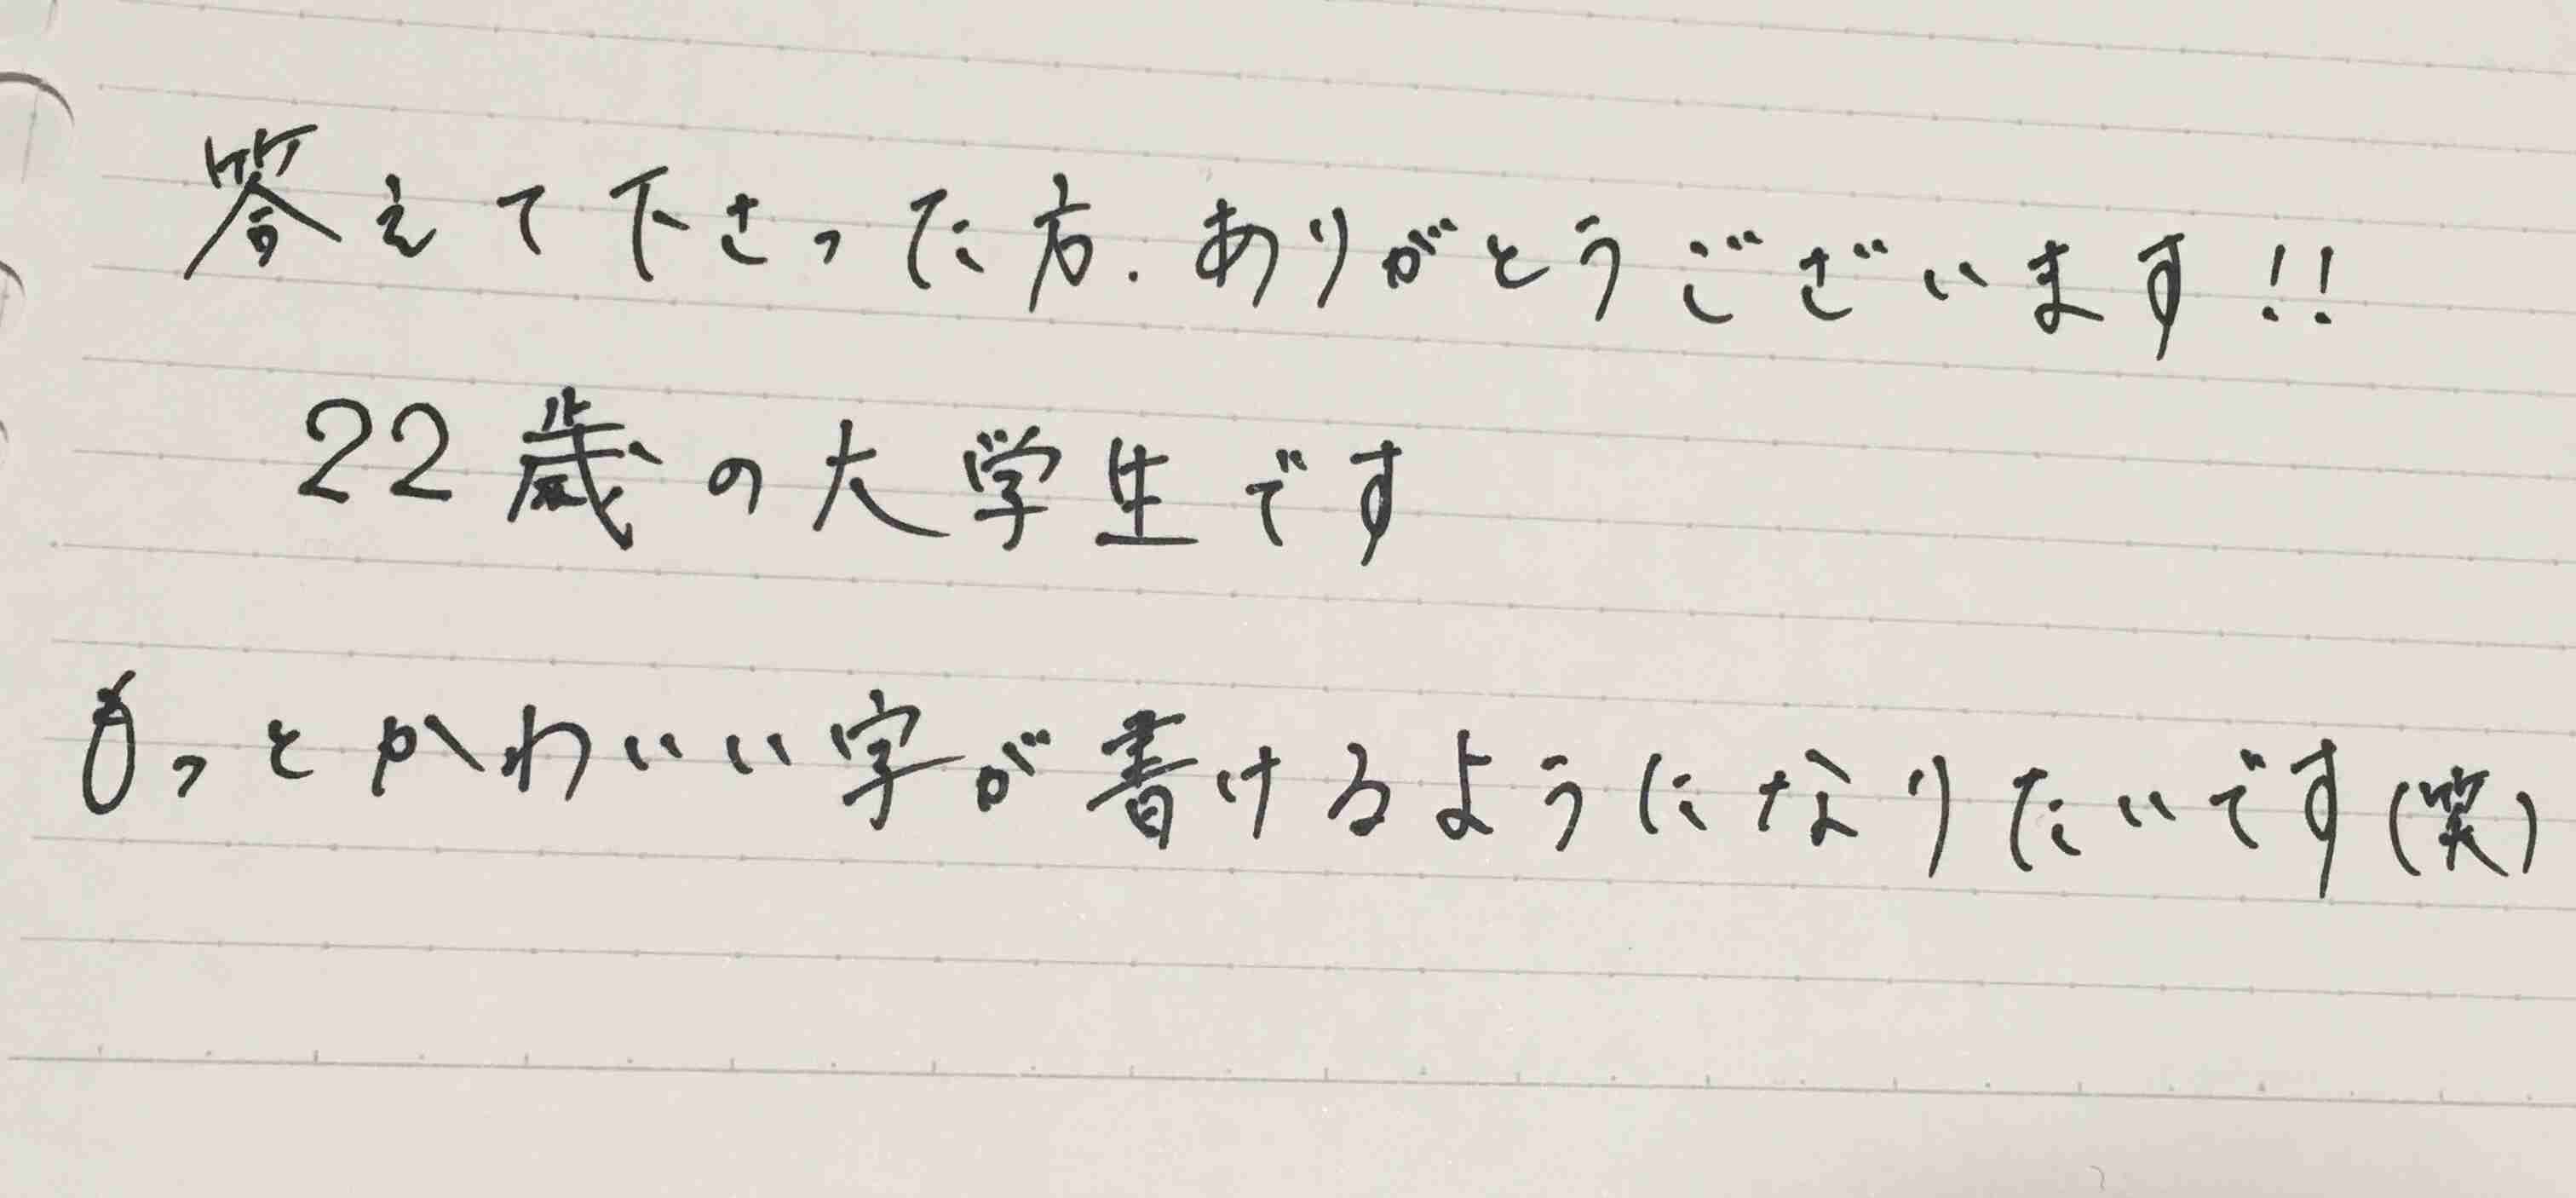 答えて下さった方.ありがとうございます!!
22歳の大学生です
もっとかわいい字が書けるようになりたいです(笑)